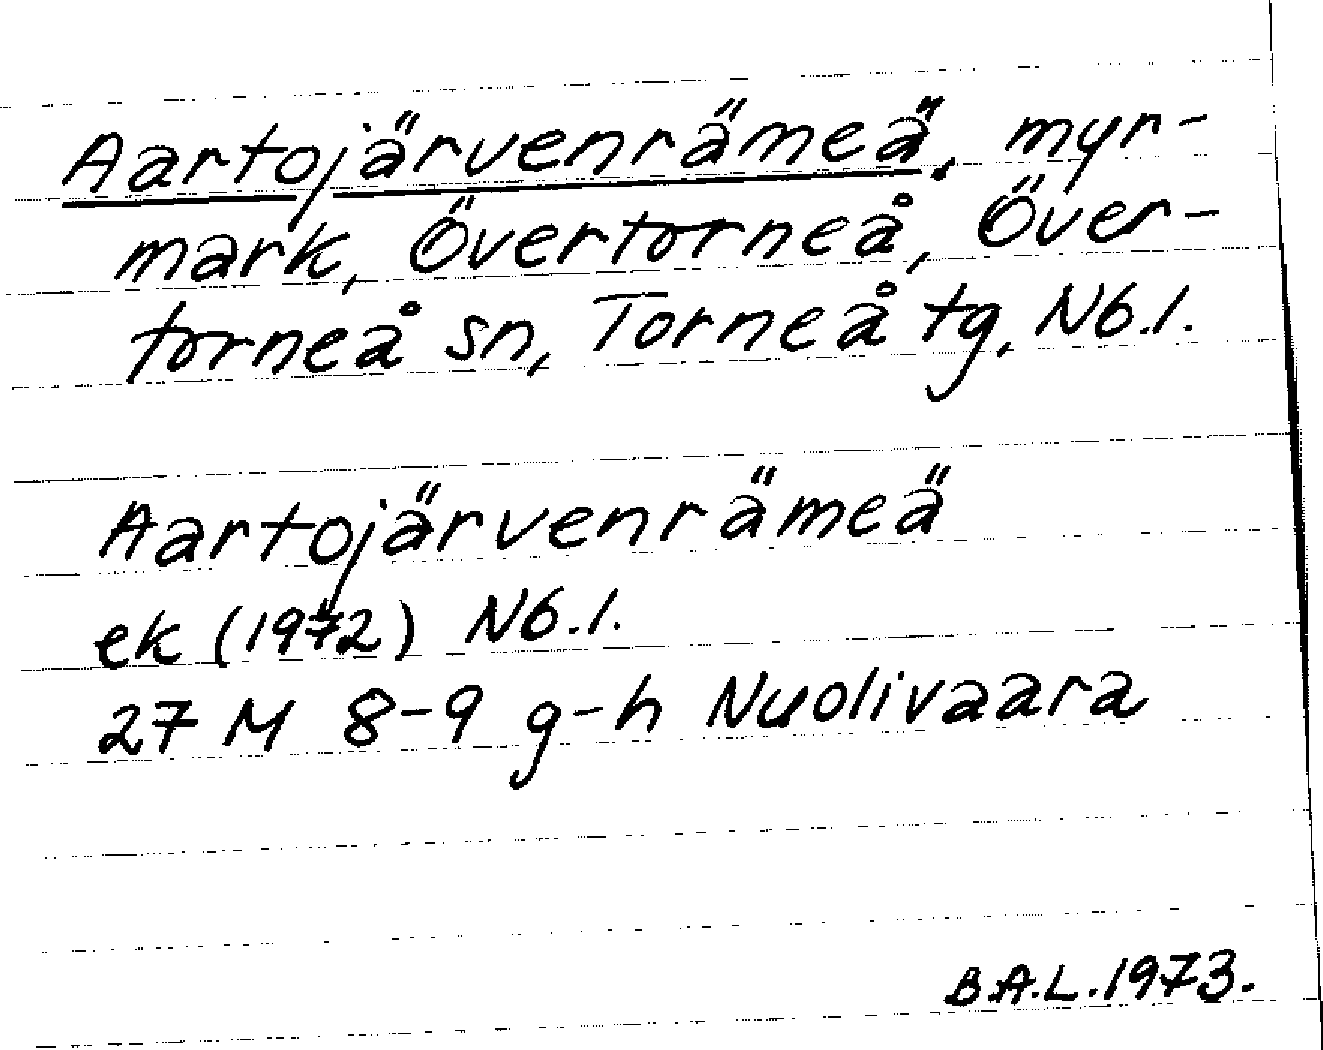 Aartojärvenrämeä, myr-
mark, Övertorneå, Över-
torneå sn, Torneå tg, Nb.l.
Aartojärvenrämeä
ek (1972) Nb.l.
27 M 8-9 g-h Nuolivaara
B.A.L. 1973.